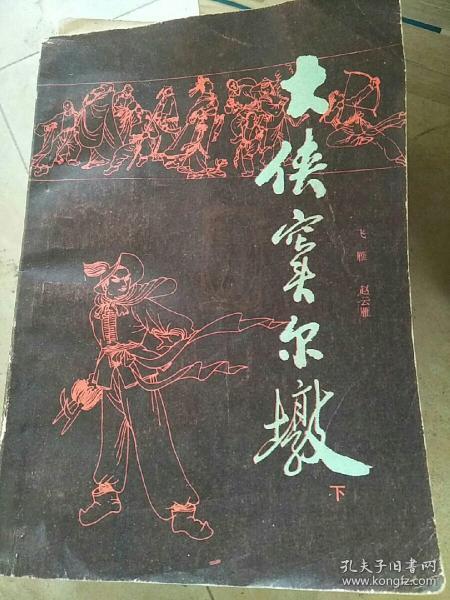 大侠窦尔墩
飞雁 赵云雁
下
孔夫子旧书网
www.kongfz.com